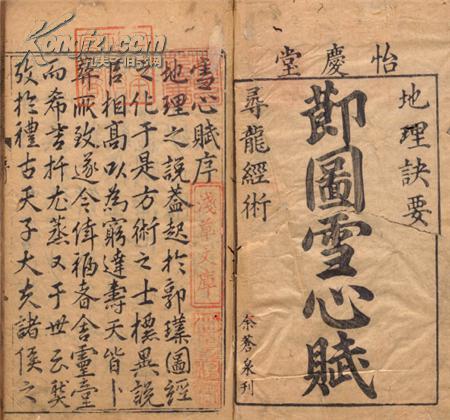 怡慶堂
地理訣要
莭圖雪心賦
尋龍經術
余蒼泉刊
雪心賦序
地理之說蓋起於郭璞圖經
之化于是方術之士標異說
㠯相高以為窮達壽夭皆卜
葬所致遂令福者舍靈臺
而希吉扦尤蒸又于世云
攷於禮古天子大夫諸侯之
淺草文庫